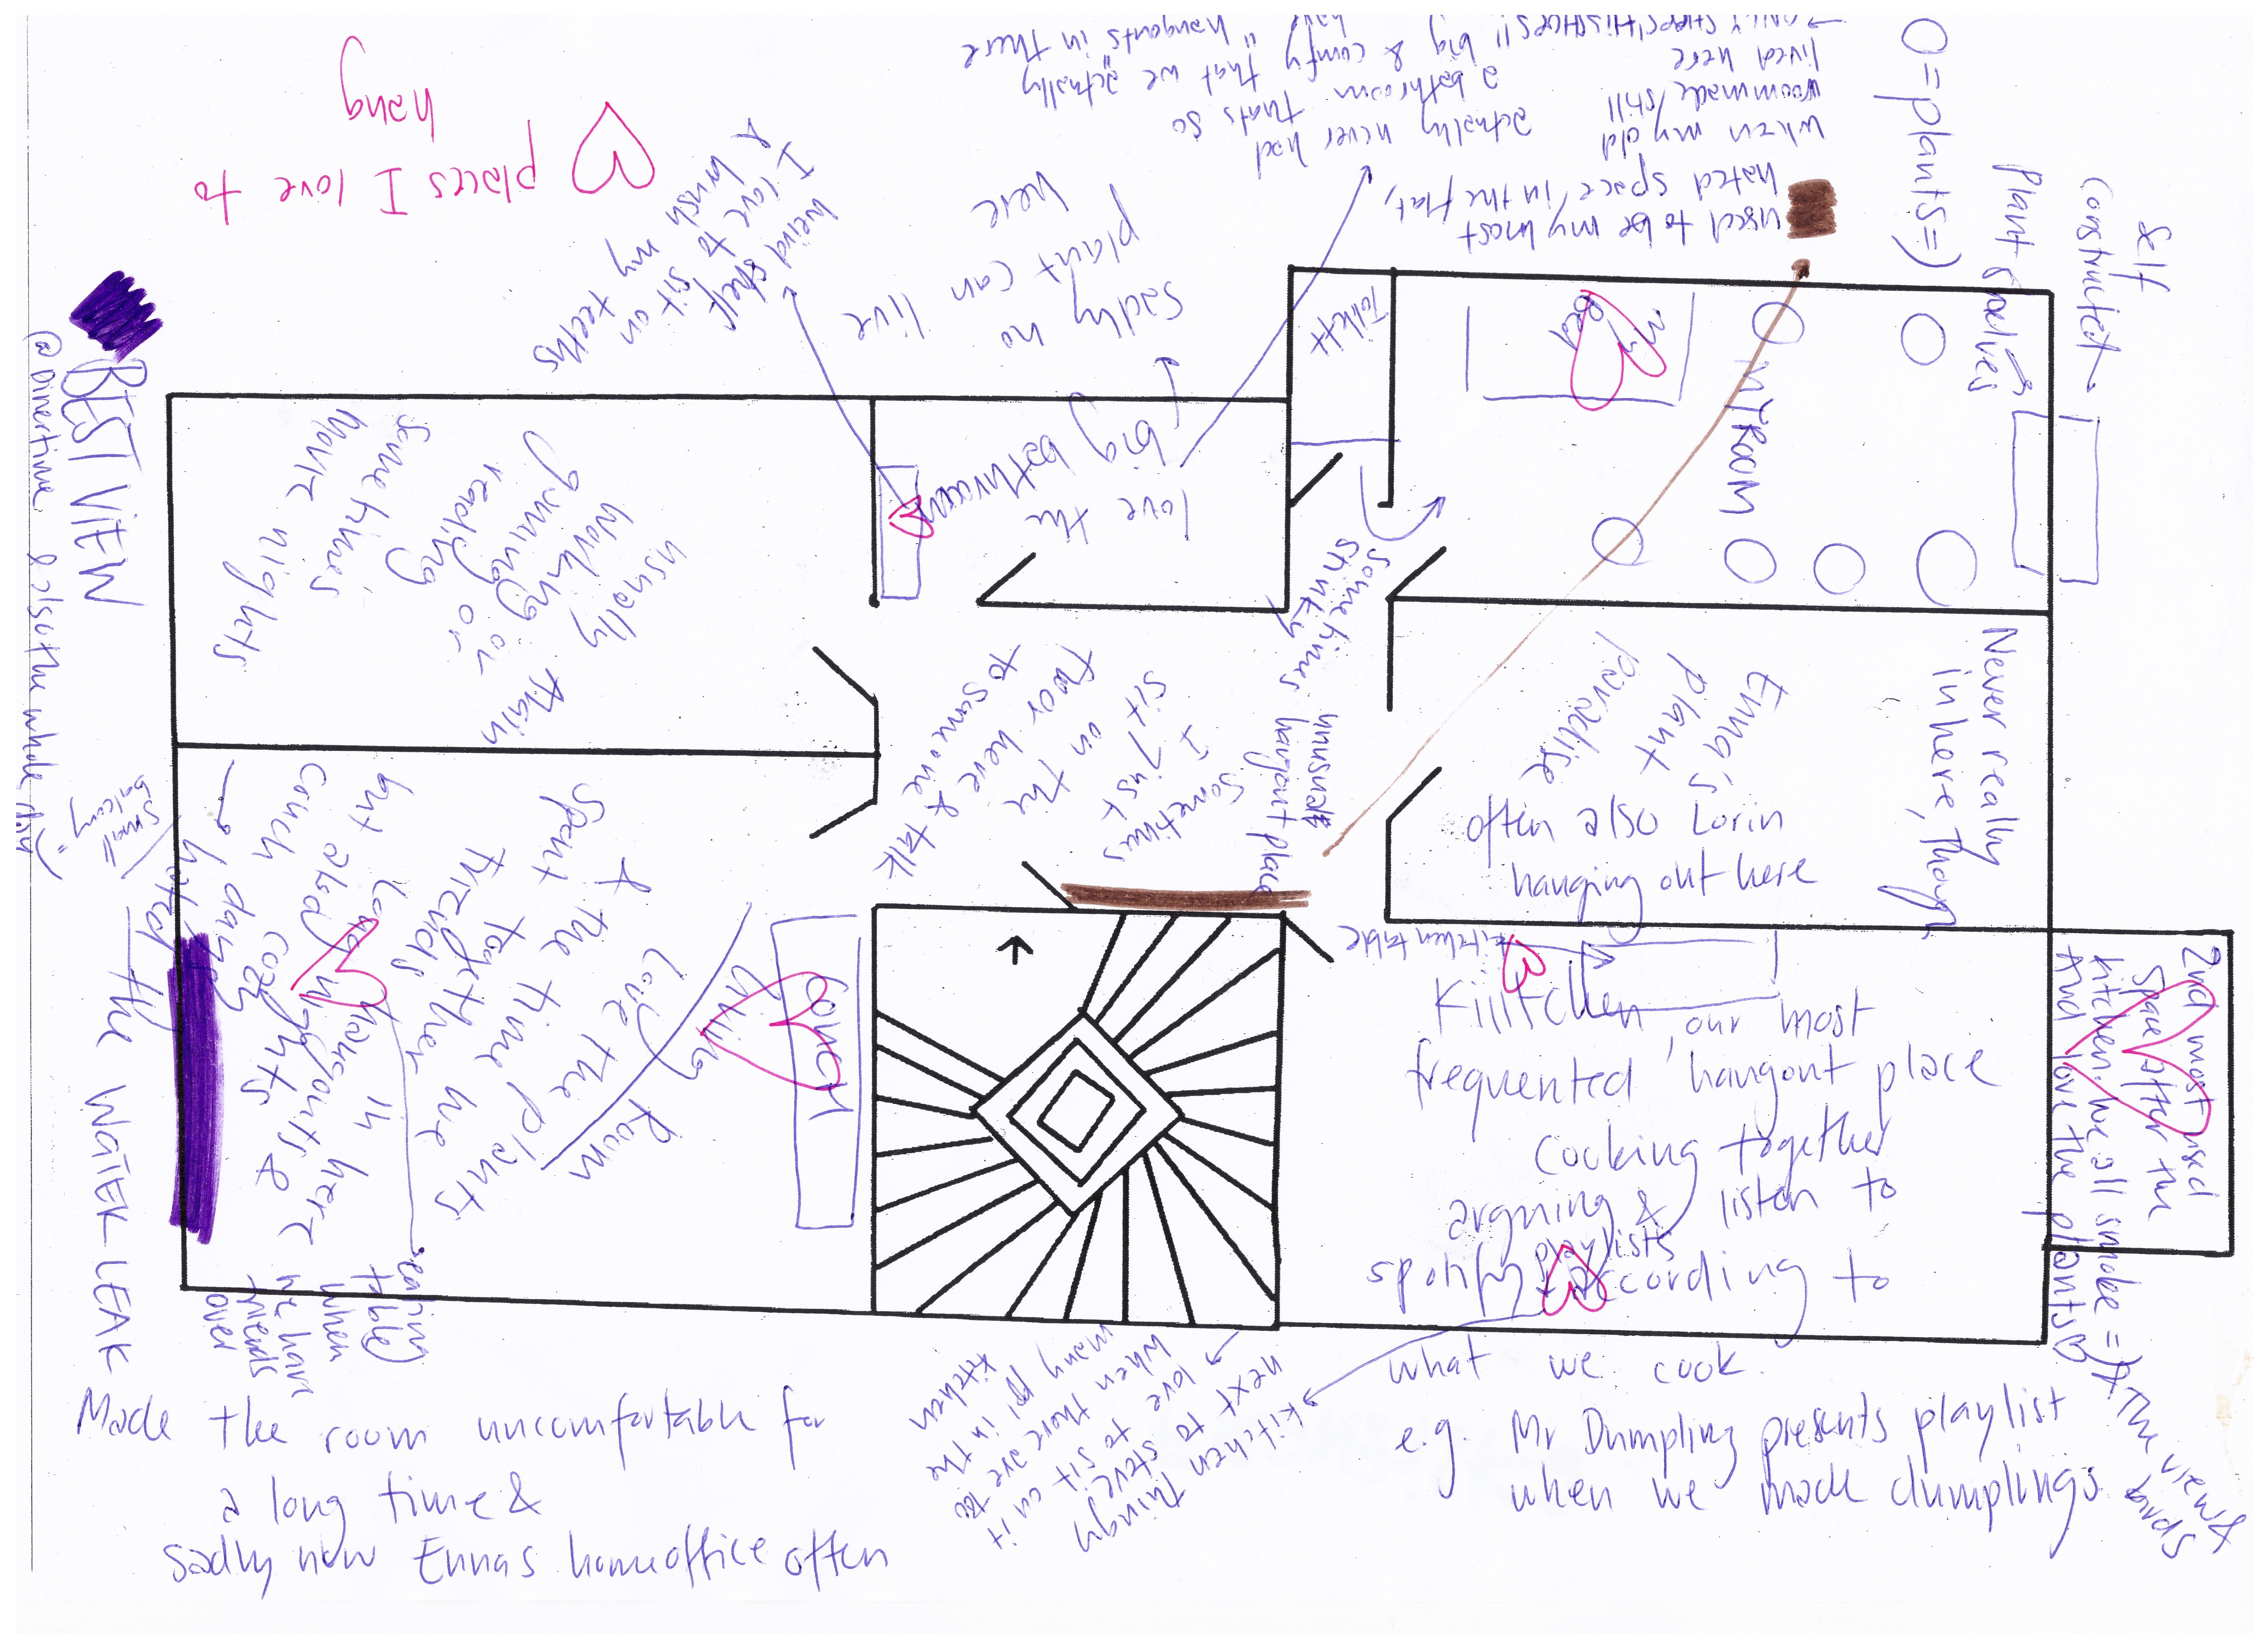 places I love to
hang
BEST VIEW
@ Dinertime & also the whole day
small
balcony
weird shelf
I love to sit on
& brush my teeths
sadly no
plant can live
here
actually never had
a bathroom thats so
big & comfy that we "actually"
"hangouts in there
used to be my most
hated space in the flat,
when my old
roommade still
lived here
O = plants =)
Self
constructed
Plant shelves
Toilett
My
Bed
MY ROOM
love the
big bathroom
usually
working
gaming or
reading or
sometimes
Movie nights
Main
Sometimes
I just
sit on the
floor here
to someone & talk
sometimes
stinky
unusual
hangout place
Enna's
plant
paradise
often also Lorin
hanging out here
Never really
in here, though
Living
Room
couch
Love the plants
& the time we
Spent together
friends
but also cozy
couch
hangouts &
nights
in here
hated
eating
table
when
we have
friends
over
the WATER LEAK
Made the room uncomfortable for
a long time &
sadly now Ennas homeoffice often
kitchen table
Kiiitchen, our most
frequented hangout place
Cooking together
arguing & listen to
spotify playlists according to
what we cook.
e.g. Mr Dumpling presents playlist
when we made dumplings
kitchen thingy
next to steve
love to sit on it
when there are too
many ppl in the
kitchen
2nd most used
space after the
kitchen. we all smoke =)
And love the plants &
& the view &
birds